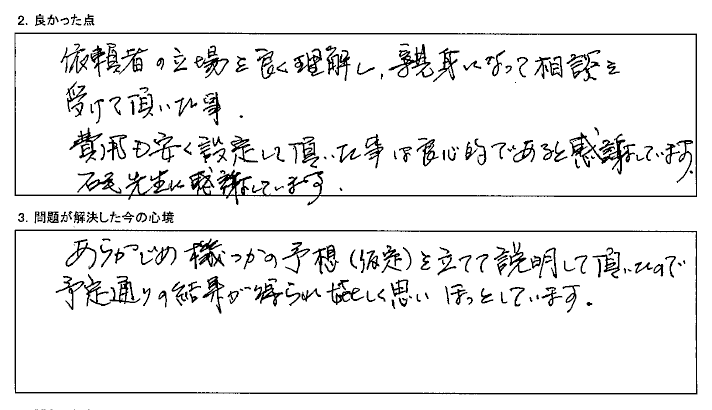 2. 良かった点
依頼者の立場を良く理解し、親身になって相談を
受けて頂いた事.
費用も安く設定して頂いた事は良心的であると感謝しています.
先生に感謝しています.
3. 問題が解決した今の心境
あらかじめ機つかの予想(仮定)を立てて説明して頂いたので
予定通りの結果が得られ嬉しく思いほっとしています.